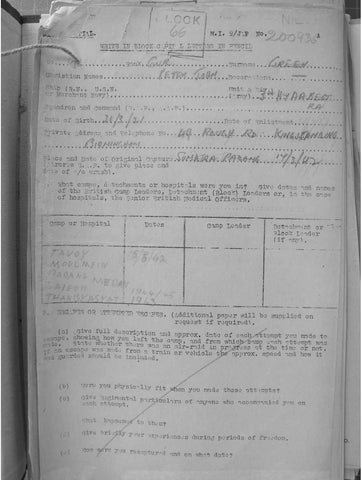 LOCK
66
NIL
M.I. 9/J.P No. 200936
WRITE IN BLOCK CAPITALS IN PENCIL
Rank Gnr Surname GREEN
Christian names PETER JOHN Decorations
Ship (R.N., U.S.N.
or Merchant Navy). Unit (Army) 3rd HY AA REGT
RA
Squadron and command
Date of birth 21/3/21 Date of enlistment
Private address and telephone No. ROUGH RD KINGSTANDING
BIRMINGHAM
Place and date of original capture SUMATRA PADANG 17/3/42
give place and
date of a/c crash).
What camps, detachments or hospitals were you in? give dates and names
of the British Camp Leaders, Detachment (Block) Leaders or, in the case
of hospitals, the Senior British Medical Officers.
Camp or Hospital Dates Camp Leader Detachment or
Block Leader
(if any).
TAVOY 15/5/42
MOULMEIN
SAIGON 1944/45
THANBYUZAYAT 1943
2. ESCAPES OR ATTEMPTED ESCAPES. (Additional paper will be supplied on
request if required).
(a) Give full description and approx. date of each attempt you made to
escape, showing how you left the camp, and from which camp each attempt was
made. State whether there was an air-raid in progress at the time or not.
If an escape was made from a train or vehicle the approx. speed and how it
was guarded should be included.
(b) Were you physically fit when you made these attempts?
(c) Give regimental particulars of anyone who accompanied you on
each attempt.
What happened to them?
Give briefly your experiences during periods of freedom.
How were you recaptured and on what date?